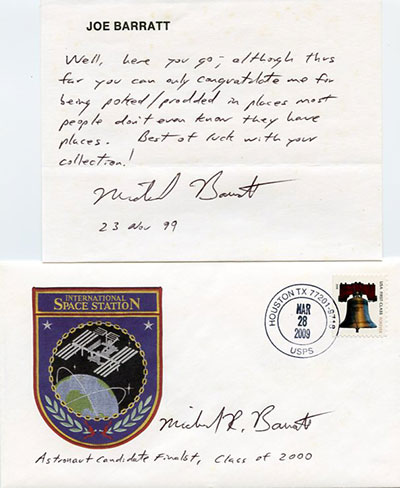 JOE BARRATT
Well, here you go; although thus
far you can only congratulate me for
being poked/prodded in places most
people don't even know they have
places. Best of luck with your
collection!
Michael Barratt
23 Nov 99
INTERNATIONAL
SPACE STATION
HOUSTON TX 77201-9719
MAR
28
2009
USPS
USA FIRST-CLASS FOREVER
Michael R. Barratt
Astronaut Candidate Finalist, Class of 2000